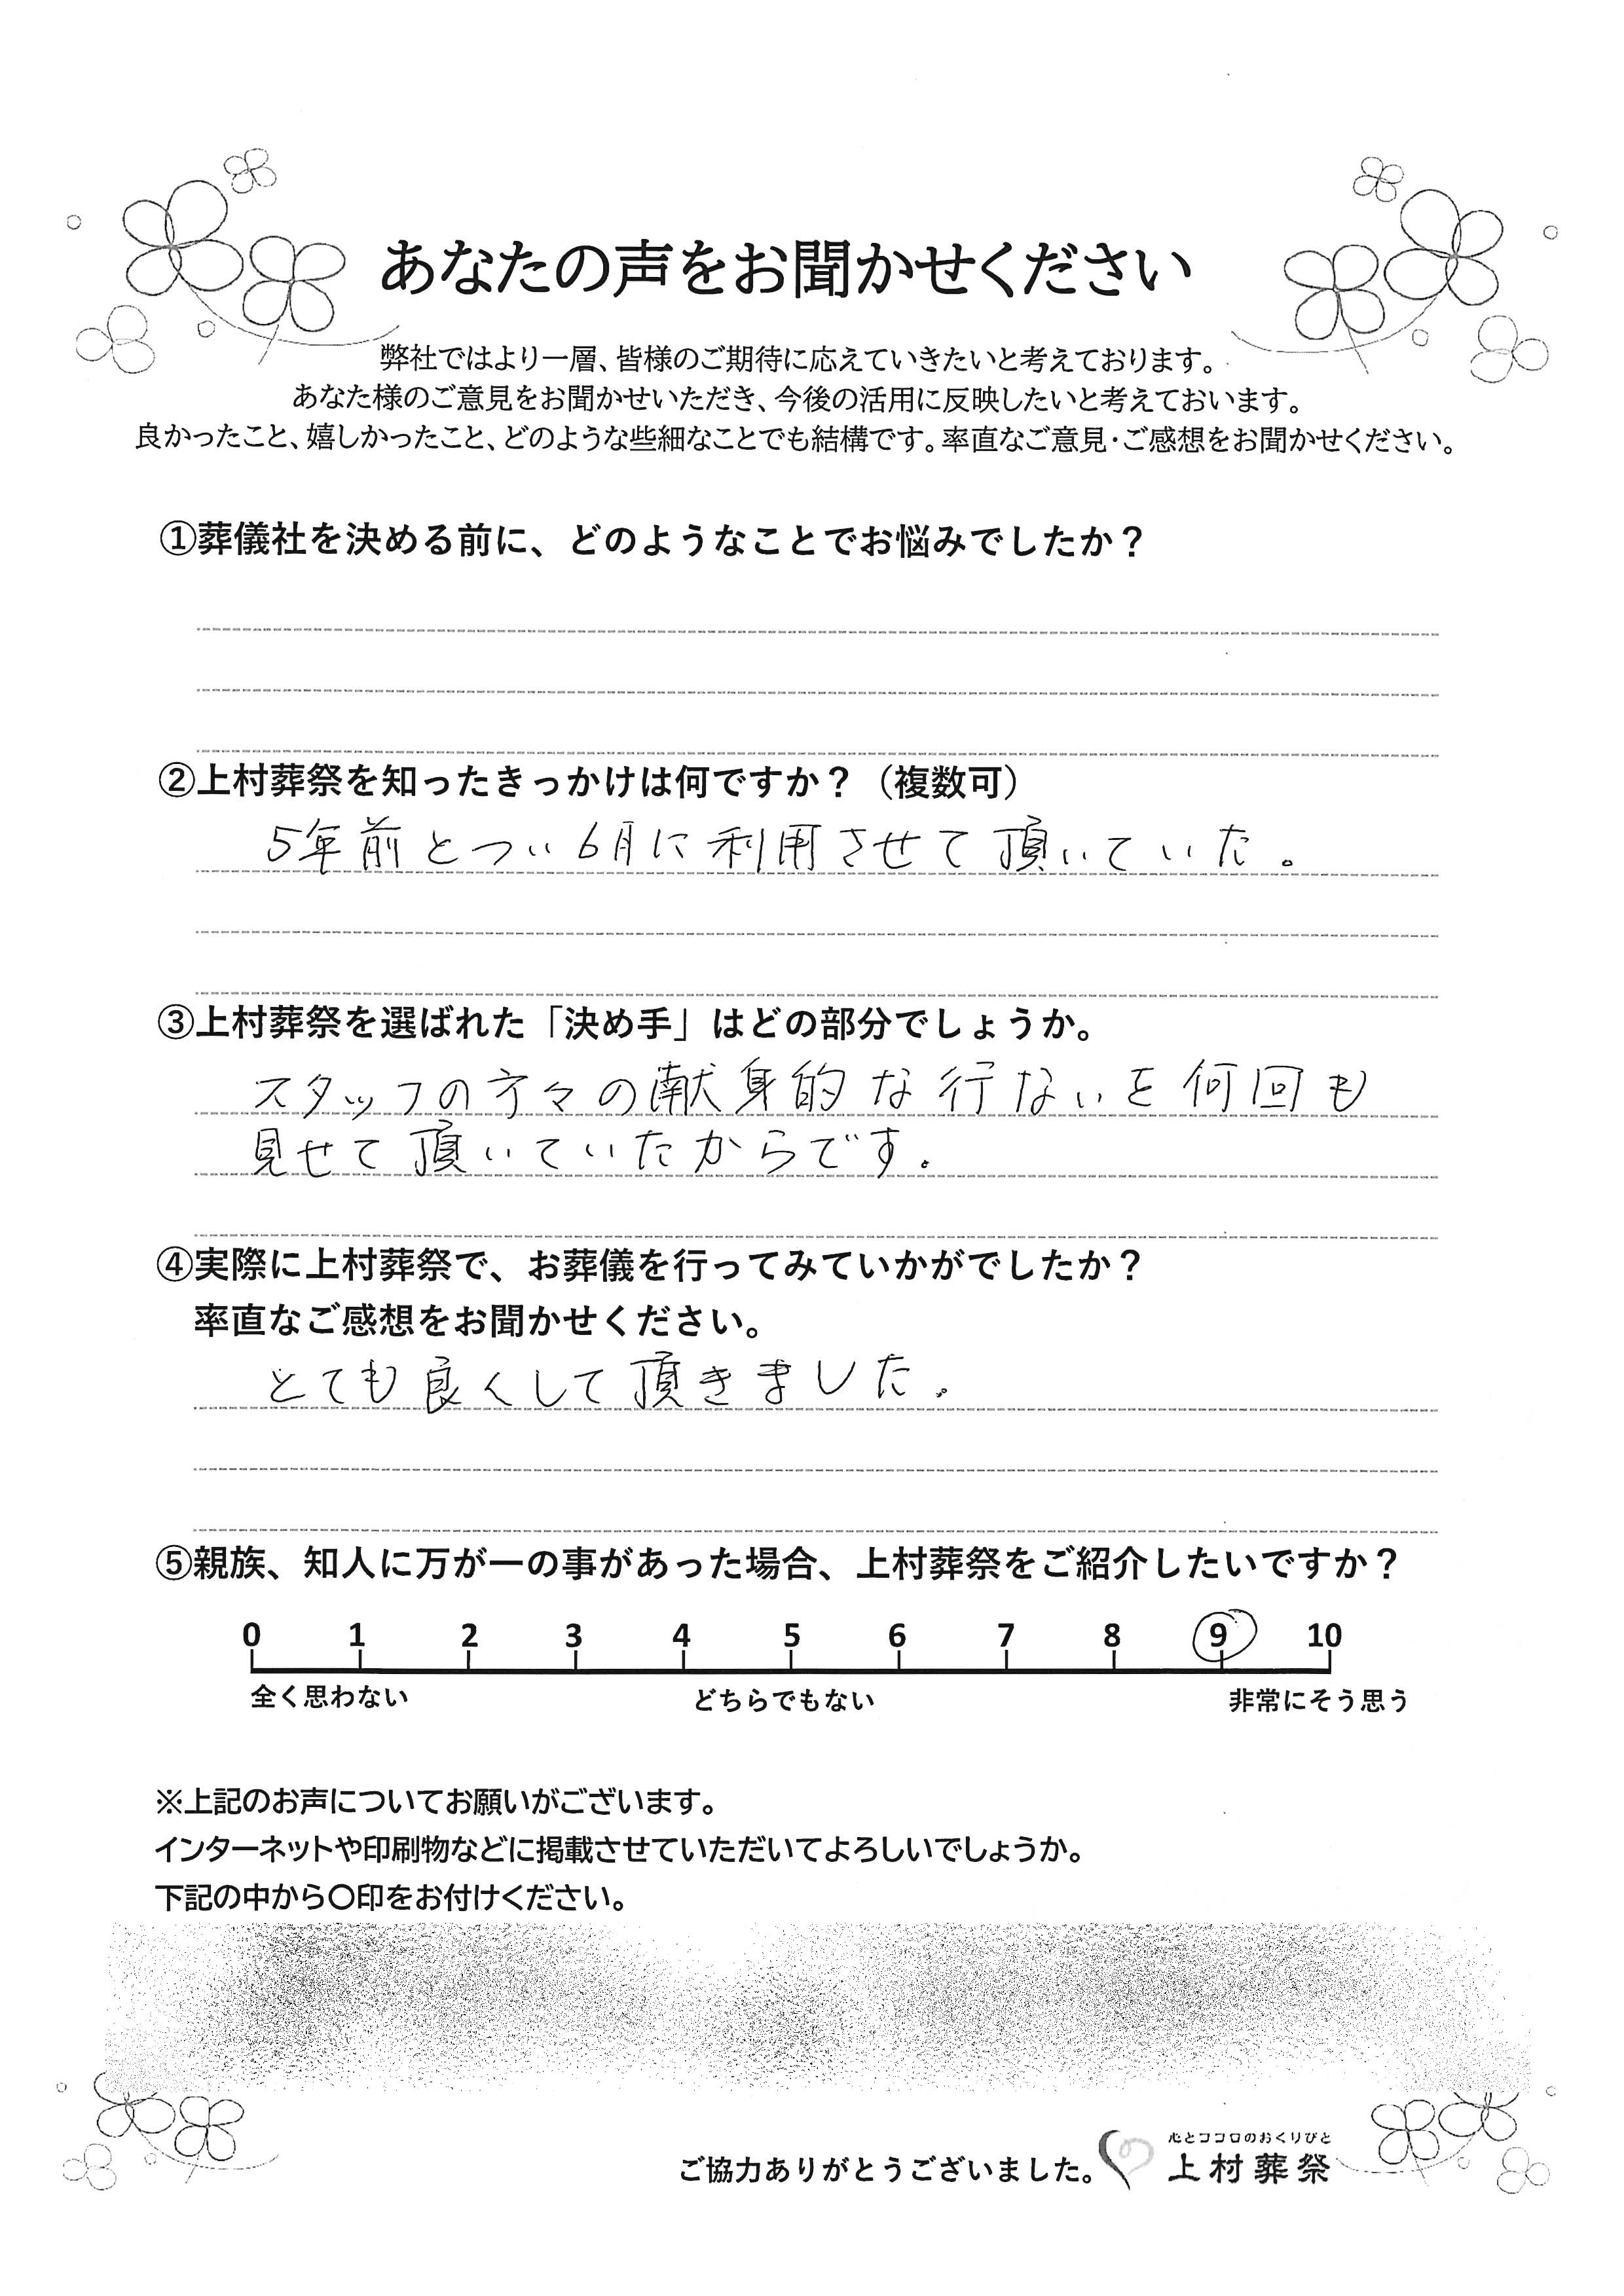 あなたの声をお聞かせください
弊社ではより一層、皆様のご期待に応えていきたいと考えております。
あなた様のご意見をお聞かせいただき、今後の活用に反映したいと考えておいます。
良かったこと、嬉しかったこと、どのような些細なことでも結構です。率直なご意見・ご感想をお聞かせください。
①葬儀社を決める前に、どのようなことでお悩みでしたか？
②上村葬祭を知ったきっかけは何ですか？（複数可）
5年前とつい6月に利用させて頂いていた。
③上村葬祭を選ばれた「決め手」はどの部分でしょうか。
スタッフの方々の献身的な行ないを何回も
見せて頂いていたからです。
④実際に上村葬祭で、お葬儀を行ってみていかがでしたか？
率直なご感想をお聞かせください。
とても良くして頂きました。
⑤親族、知人に万が一の事があった場合、上村葬祭をご紹介したいですか？
0 1 2 3 4 5 6 7 8 9 10
全く思わない どちらでもない 非常にそう思う
※上記のお声についてお願いがございます。
インターネットや印刷物などに掲載させていただいてよろしいでしょうか。
下記の中から〇印をお付けください。
心とココロのおくりびと
ご協力ありがとうございました。 上村葬祭